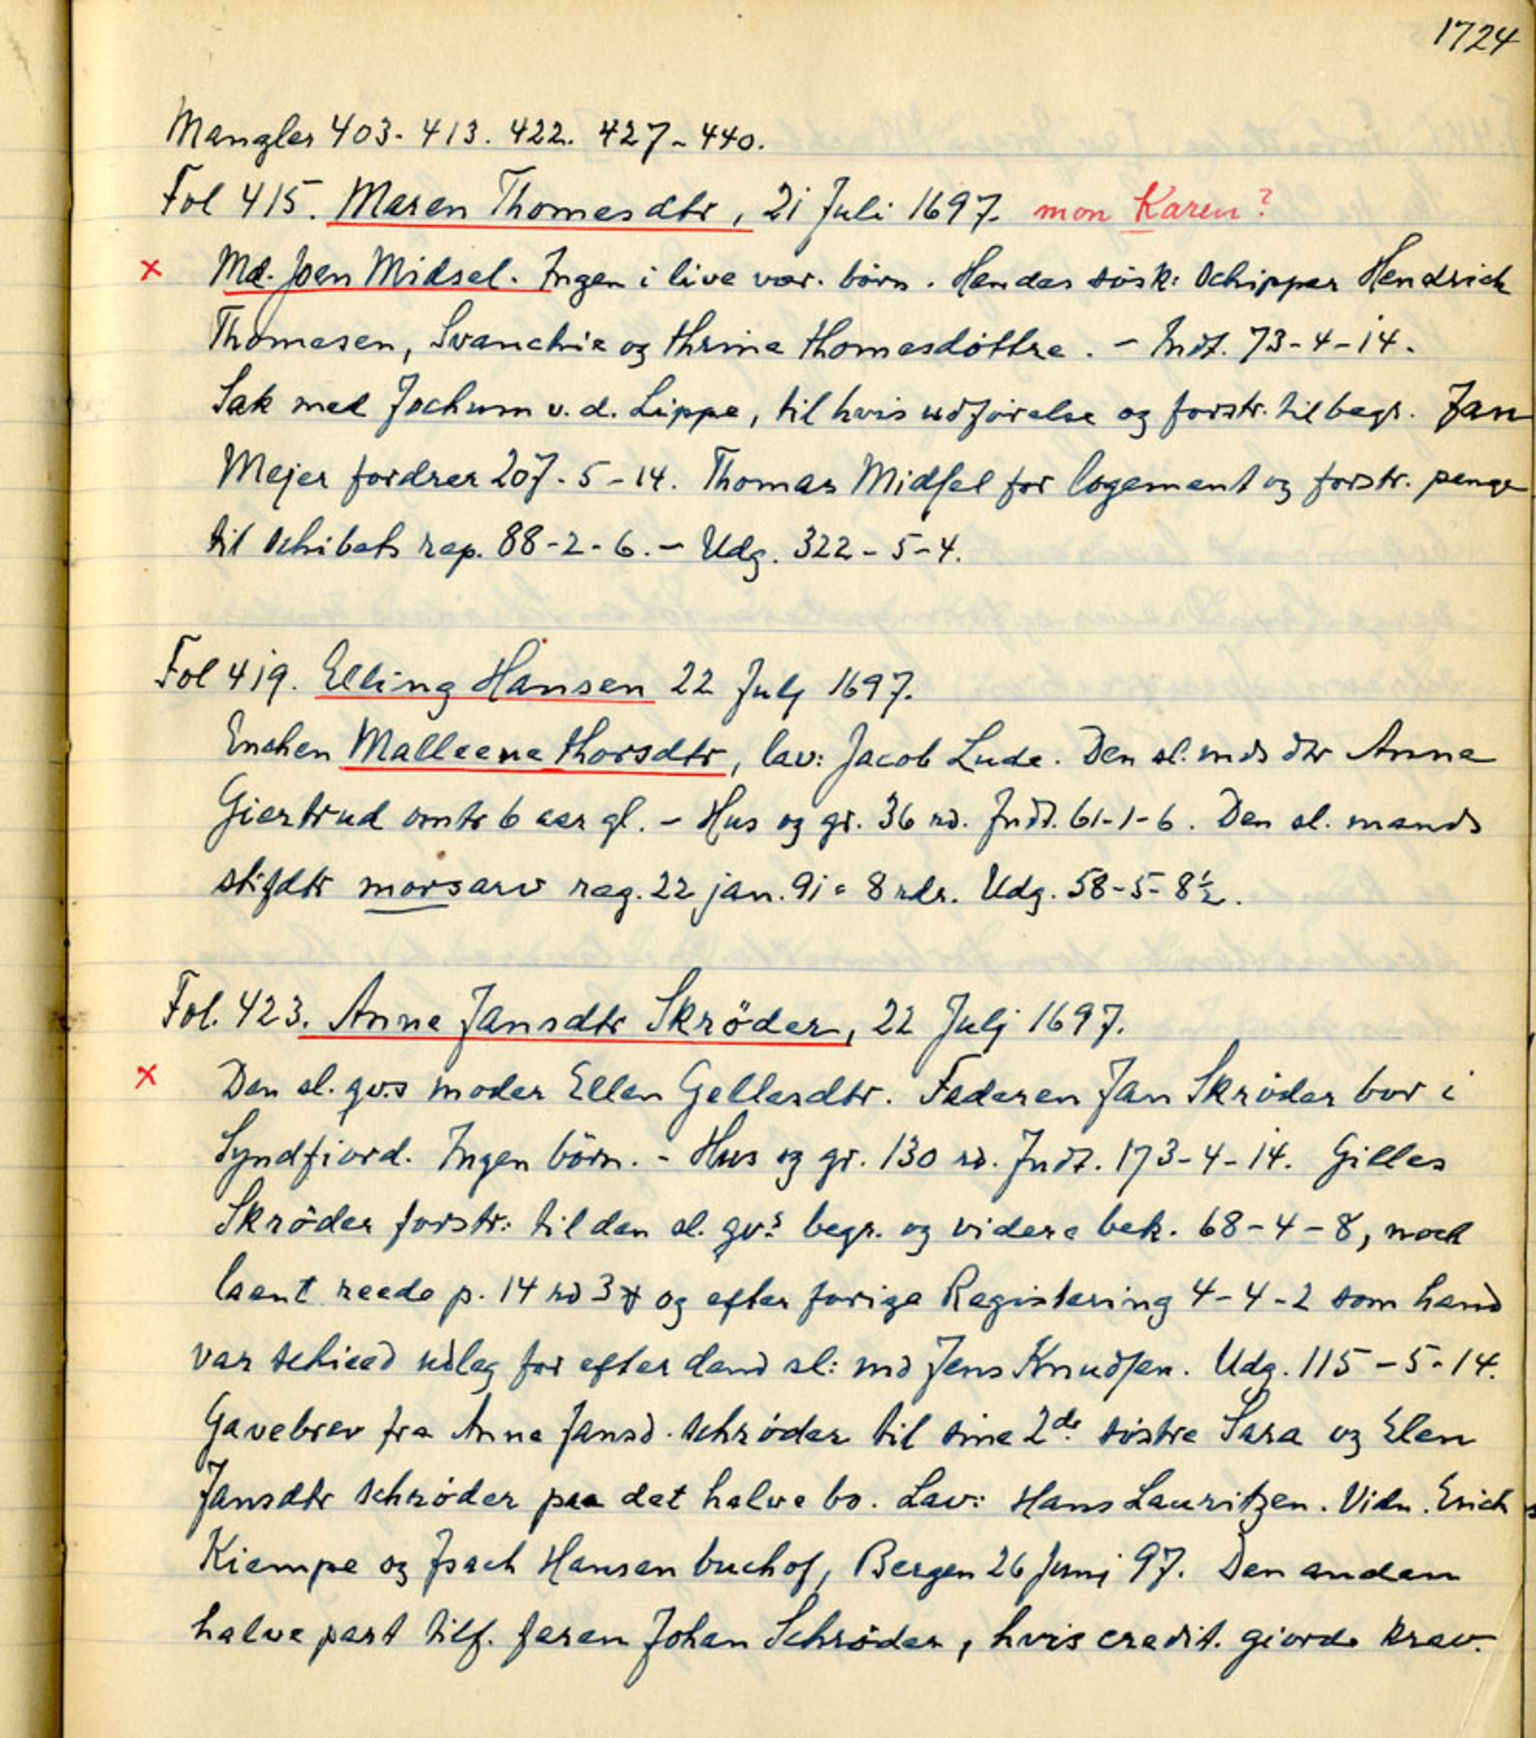 1724
Mangler 403-413. 422. 427-440.
Fol 415. Maren Thomesdtr, 21 Juli 1697. mon Karen?
x Md. Joen Midsel. Ingen i live vær. børn. Hendes søsk: Schipper Hendrich
Thomesen, Svanchie og thrine thomesdøttre. - Indt. 73-4-14.
Sak med Jochum v.d. Lippe, til hvis udførelse og forstr. til begr. Jan
Mejer fordrer 207-5-14. Thomas Midsel for logement og forstr. penge
til schibets rep. 88-2-6. - Udg. 322-5-4.
Fol 419. Elling Hansen 22 July 1697.
Enchen Malleene thorsdtr, lav: Jacob Lude. Den sl. mds dtr Anne
Giertrud omtr 6 aar gl. - Hus og gr. 36 rd. Indt. 61-1-6. Den sl. mands
stifdtr morsarv reg. 22 jan. 91 = 8 rdr. Udg. 58-5-8½.
Fol. 423. Anne Jansdtr Skröder, 22 Julj 1697.
x Den sl. qv.s moder Ellen Gellesdtr. Faderen Jan Skrøder bor i
Syndfiord. Ingen børn. - Hus og gr. 130 rd. Indt. 173-4-14. Gilles
Skrøder forstr: til den sl. qv.s begr. og videre bek. 68-4-8, noch
laant reede p. 14 rd 3 og efter forige Registering 4-4-2 som hand
var scheed udlæg for efter dend sl: md Jens Knudsen. Udg. 115-5-14.
Gavebrev fra Anne Jansd. schrøder til sine 2de søstre Sara og Elen
Jansdtr schrøder paa det halve bo. Lav: Hans Lauritzen. Vidn. Erich
Kiempe og Isach Hansen buchof, Bergen 26 Junj 97. Den anden
halve part tilf. faren Johan Schrøder, hvis credit. giorde krav.